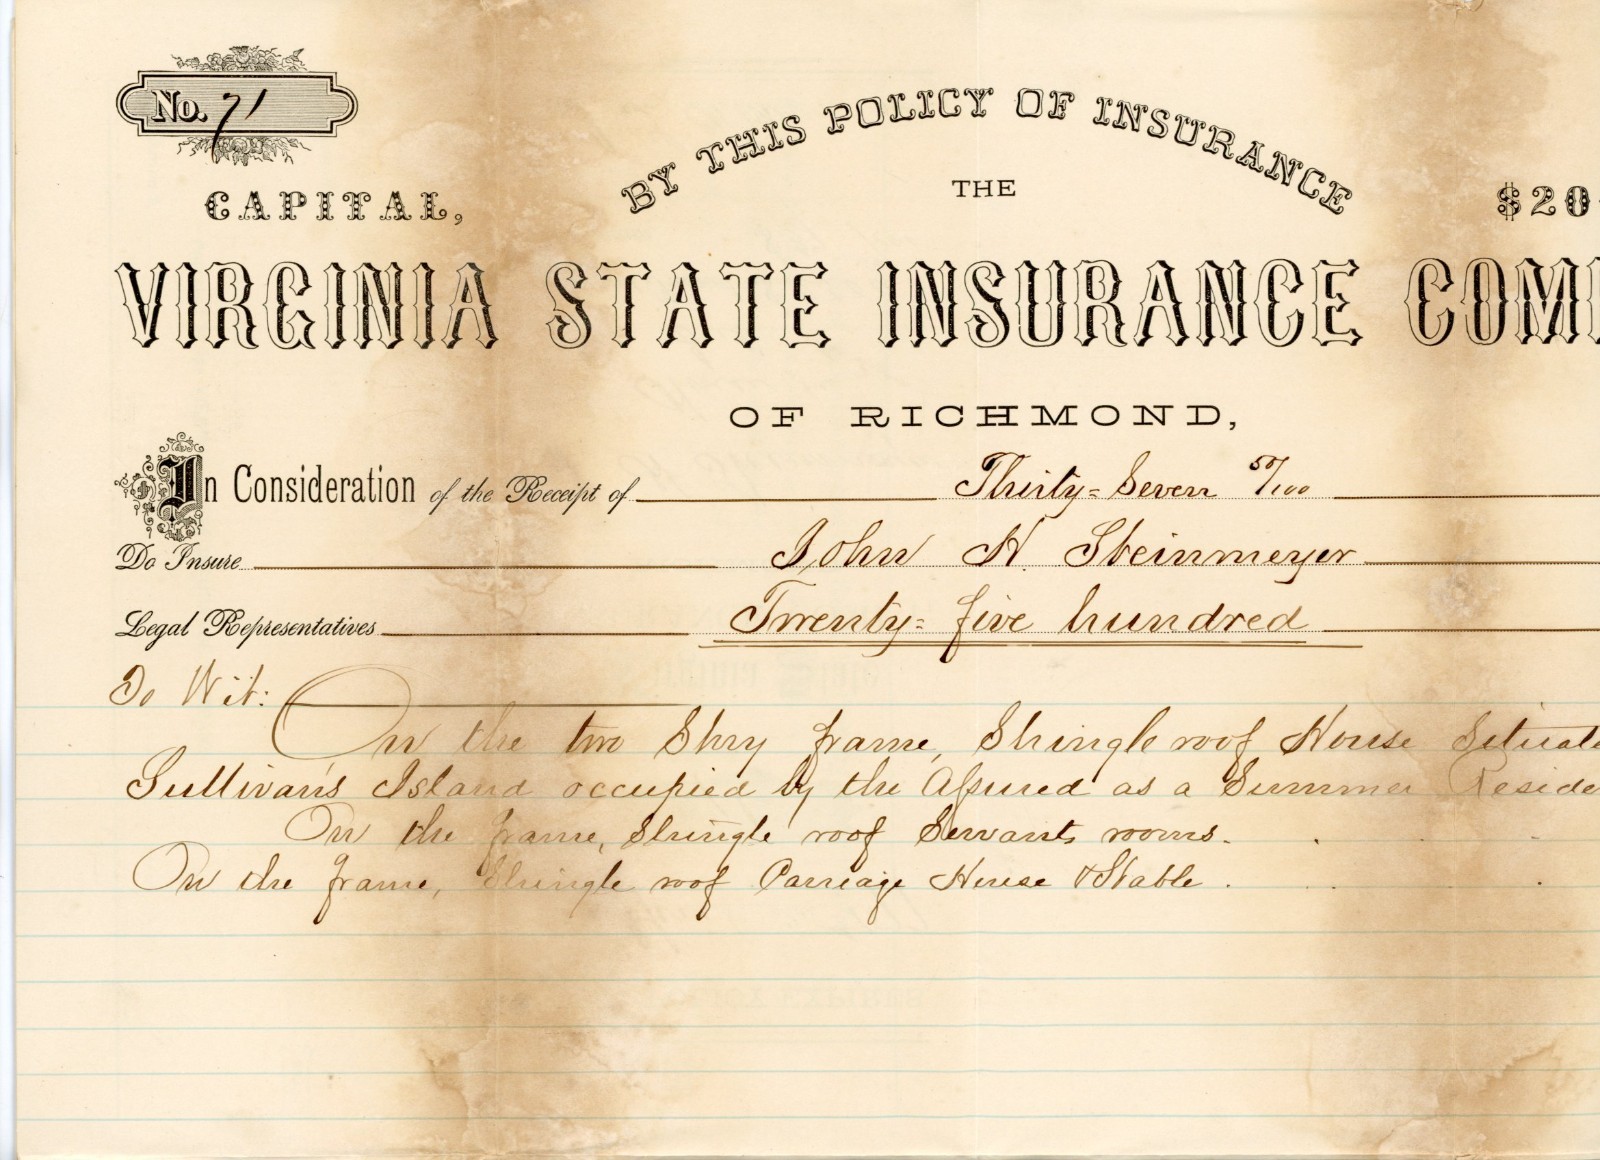 No. 71
BY THIS POLICY OF INSURANCE
THE
CAPITAL, $20
VIRGINIA STATE INSURANCE COM
OF RICHMOND,
In Consideration of the Receipt of Thirty-Seven 50/100
Do Insure John H. Steinmeyer
Legal Representatives Twenty-five hundred
To Wit:
On the two Story frame, Shingle roof House Situate
Sullivan's Island occupied by the Assured as a Summer Reside
On the frame, Shingle roof Servants rooms.
On the frame, Shingle roof Carriage House & Stable.